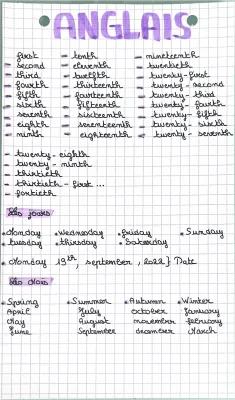 ANGLAIS
- first - tenth - nineteenth
- second - eleventh - twentieth
- third - twelfth - twenty-first
- fourth - thirteenth - twenty-second
- fifth - fourteenth - twenty-third
- sixth - fifteenth - twenty-fourth
- seventh - sixteenth - twenty-fifth
- eighth - seventeenth - twenty-sixth
- ninth - eighteenth - twenty-seventh
- twenty-eighth
- twenty-ninth
- thirtieth
- thirtieth-first ...
- fortieth
Les jours
• Monday • Wednesday • friday • Sunday
• tuesday • thursday • Saturday
• Monday 19th, september, 2022 } Date
Les Mois
• Spring • Summer • Autumn • Winter
April July october January
May August november february
June September december March